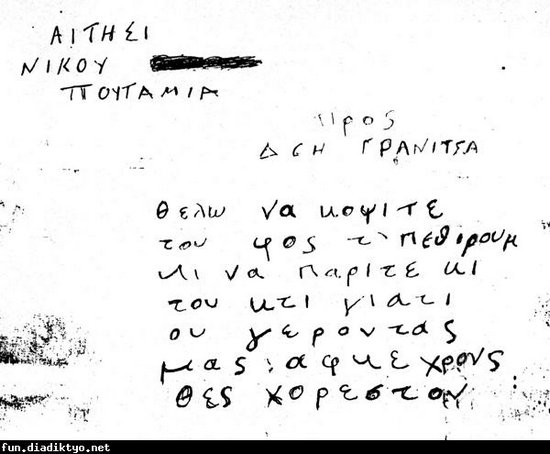 ΑΙΤΗΣΙ
ΝΙΚΟΥ
ΠΟΥΤΑΜΙΑ
Προς
ΔΕΗ ΓΡΑΝΙΤΣΑ
Θελω να κοψιτε
του φος τ' πεθιρουμ
κι να παριτε κι
του κτι γιατι
ου γεροντας
μας αφκε χρους
θες χορεστον
fun.diadiktyo.net